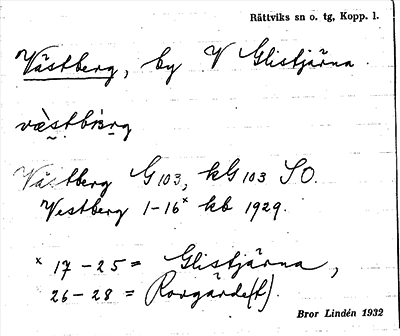 Rättviks sn o. tg, Kopp. l.
Västberg, by V Glistjärna.
Västberg G103, kG103 SO.
Westberg 1-16x kb 1929.
x 17-25 = Glistjärna,
26-28 = Rorgärde(t).
Bror Lindén 1932